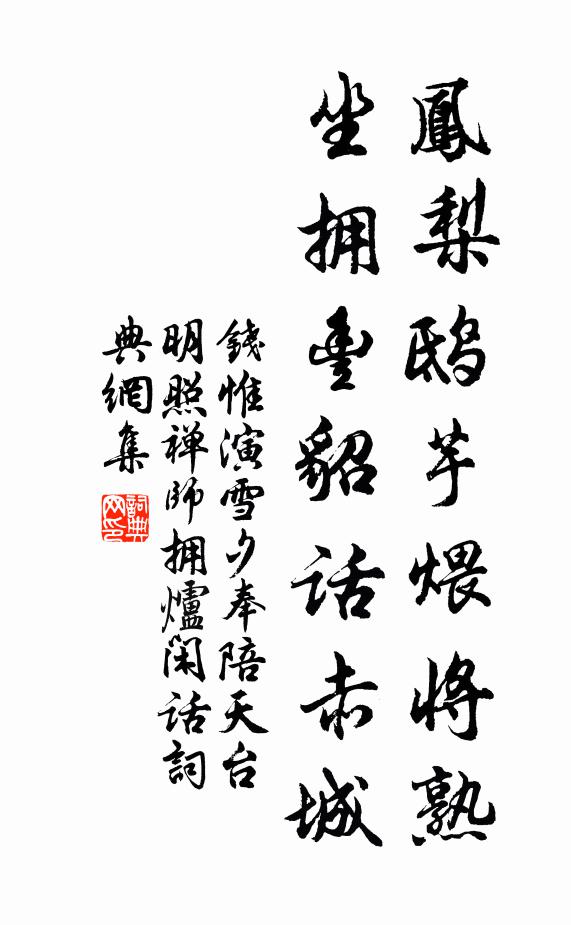 鳳梨鴟芋煨將熟
坐拥豐貂话赤城
錢惟演雪夕奉陪天台
明照禅師拥爐閑话詞
典網集
詞典
网印